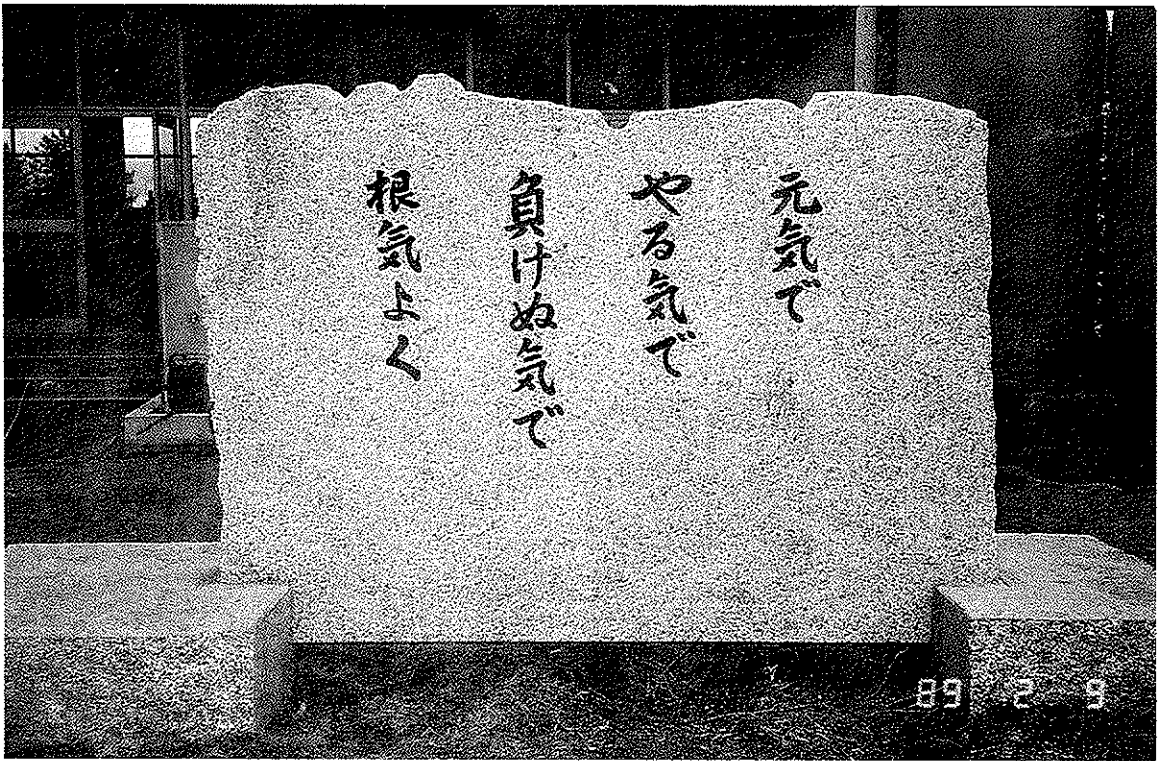 元気で
やる気で
負けぬ気で
根気よく
89 2 9